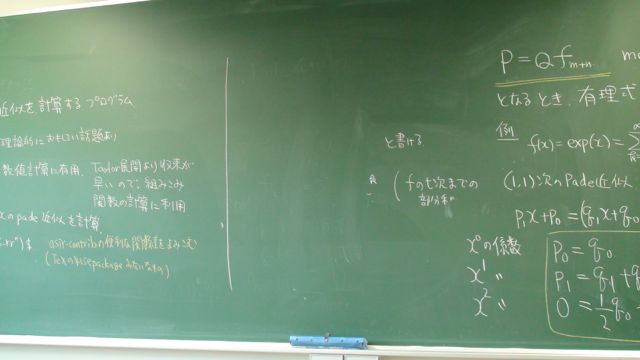 近似を計算する プログラム
理論的におもしろい話題あり
数値計算に有用. Taylor展開より収束が
早いので, 組みこみ
関数の計算に利用
xのpade近似を計算.
rr")$ asir-contribの便利な関数達をよみこむ
(TeXの\usepackage みたいなもの)
と書ける
(fの七次までの
部分和
P = Q f_{m+n}
となるとき, 有理式
例 f(x) = exp(x) = ∑
(1,1)次のPade近似
P₁x+P₀ = (q₁x+q₀
x⁰の係数 P₀ = q₀
x¹ 〃 P₁ = q₁ + q
x² 〃 0 = 1/2 q₀